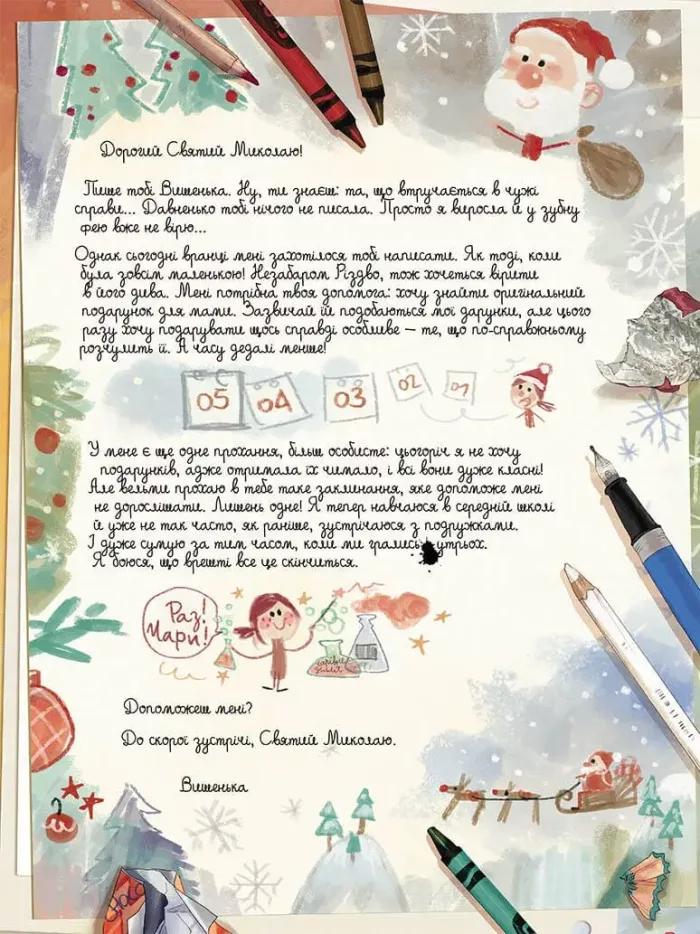 Дорогий Святий Миколаю!
Пише тобі Вишенька. Ну, ти знаєш: та, що втручається в чужі
справи... Давненько тобі нічого не писала. Просто я виросла й у зубну
фею вже не вірю...
Однак сьогодні вранці мені захотілося тобі написати. Як тоді, коли
була зовсім маленькою! Незабаром Різдво, тож хочеться вірити
в його дива. Мені потрібна твоя допомога: хочу знайти оригінальний
подарунок для мами. Зазвичай їй подобаються мої дарунки, але цього
разу хочу подарувати щось справді особливе — те, що по-справжньому
розчулить її. А часу дедалі менше!
05 04 03 02 01
У мене є ще одне прохання, більш особисте: цьогоріч я не хочу
подарунків, адже отримала їх чимало, і всі вони дуже класні!
Але вельми прохаю в тебе таке заклинання, яке допоможе мені
не дорослішати. Лишень одне! Я тепер навчаюся в середній школі
й уже не так часто, як раніше, зустрічаюся з подружками.
І дуже сумую за тим часом, коли ми грались утрьох.
Я боюся, що врешті все це скінчиться.
Раз!
Мари!
Допоможеш мені?
До скорої зустрічі, Святий Миколаю.
Вишенька